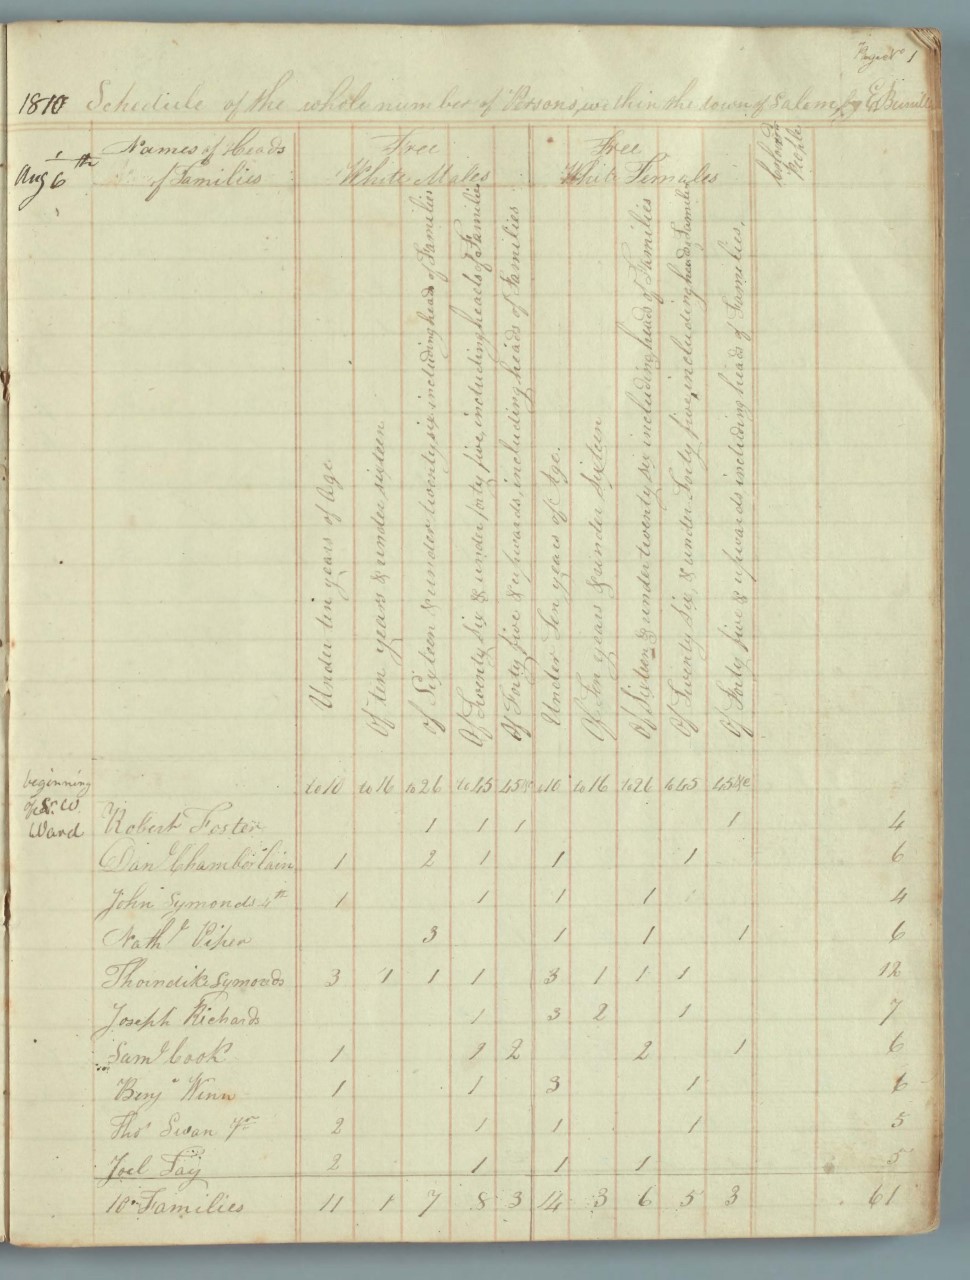 Page No 1
1810 Schedule of the whole number of Persons, within the town of Salem, by
Aug 6th
Names of Heads of Families
Free White Males
Free White Females
Colored People
Under ten years of Age
Of ten years & under sixteen
Of Sixteen & under twenty six, including heads of Families
Of Twenty Six & under forty five, including heads of Families
Of Forty five & upwards, including heads of Families
Under Ten years of Age.
Of Ten years & under Sixteen
Of Sixteen & under twenty six including heads of Families
Of Twenty Six, & under Forty five, including heads of Families
Of Forty five & upwards including heads of Families.
beginning
Ward
to 10 to 16 to 26 to 45 45 &c to 10 to 16 to 26 to 45 45 &c
Robert Foster 1 1 1 1 4
Danl Chamberlain 1 2 1 1 1 6
John Symonds 4th 1 1 1 1 4
Nathl Piper 3 1 1 1 6
Thorndike Symonds 3 1 1 1 3 1 1 1 12
Joseph Richards 1 3 2 1 7
Saml Cook 1 2 2 1 6
Benj Winn 1 1 3 1 6
Thos Swan Jr 2 1 1 1 5
Joel Fay 2 1 1 1 5
10 Families 11 1 7 8 3 14 3 6 5 3 61